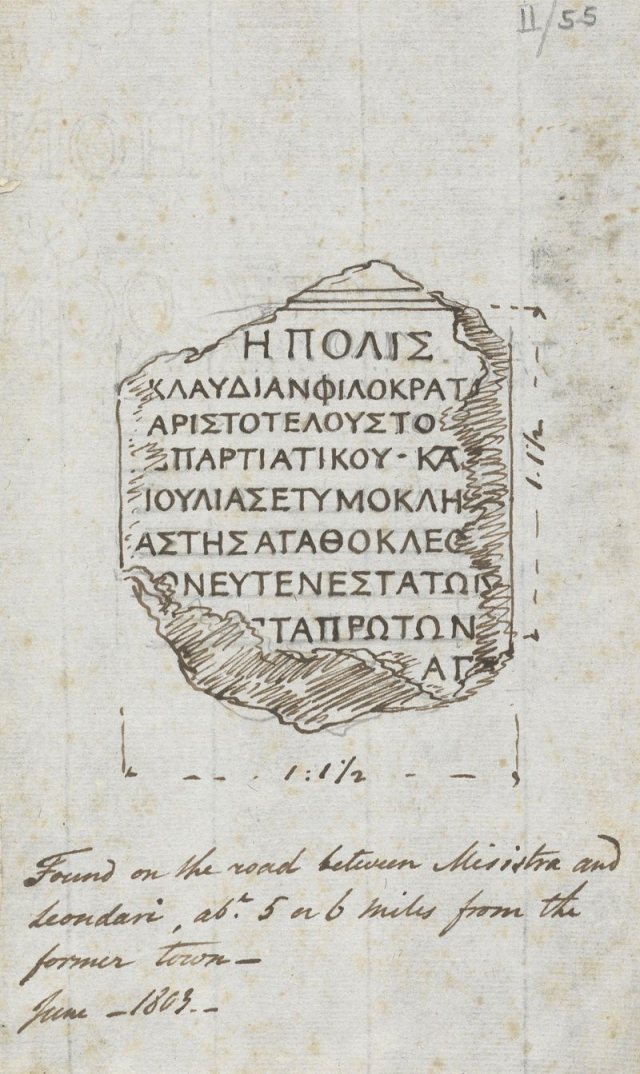 II/55
ΗΠΟΛΙΣ
ΚΛΑΥΔΙΑΝΦΙΛΟΚΡΑΤ
ΑΡΙΣΤΟΤΕΛΟΥΣΤΟ
ΠΑΡΤΙΑΤΙΚΟΥ - ΚΑ
ΙΟΥΛΙΑΣΕΤΥΜΟΚΛΗ
ΑΣΤΗΣΑΓΑΘΟΚΛΕΟ
ΟΝΕΥΓΕΝΕΣΤΑΤΩΝ
ΤΑΠΡΩΤΩΝ
ΑΓ
1.1½
1:1½
Found on the road between Misistra and
Leondari, abt. 5 or 6 miles from the
former town -
June - 1803. -